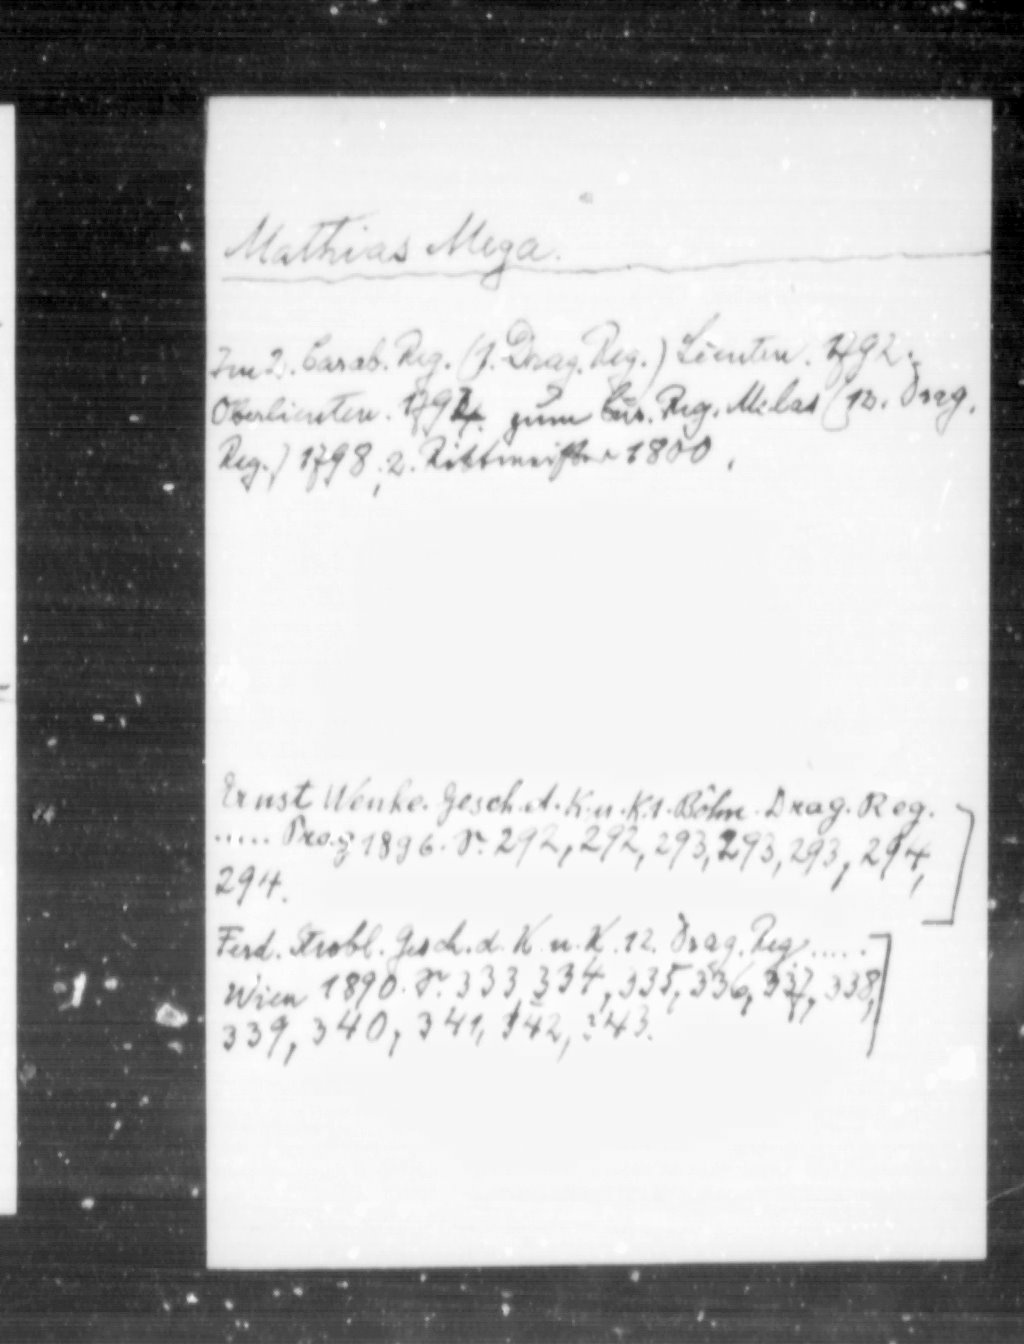 Mathias Mega.
Im 2. Carab. Reg. (1. Drag. Reg.) Lieuten. 1792.
Oberlieuten. 1794. zum Cür. Reg. Melas (12. Drag.
Reg.) 1798; 2. Rittmeister 1800.
Ernst Wenke. Gesch. d. K. u. K. 1. Böhm. Drag. Reg.
..... Prag 1896. S. 292, 292, 293, 293, 293, 294,
294.
Ferd. Strobl. Gesch. d. K. u. K. 12. Drag. Reg.....
Wien 1890. S. 333, 334, 335, 336, 337, 338,
339, 340, 341, 342, 343.